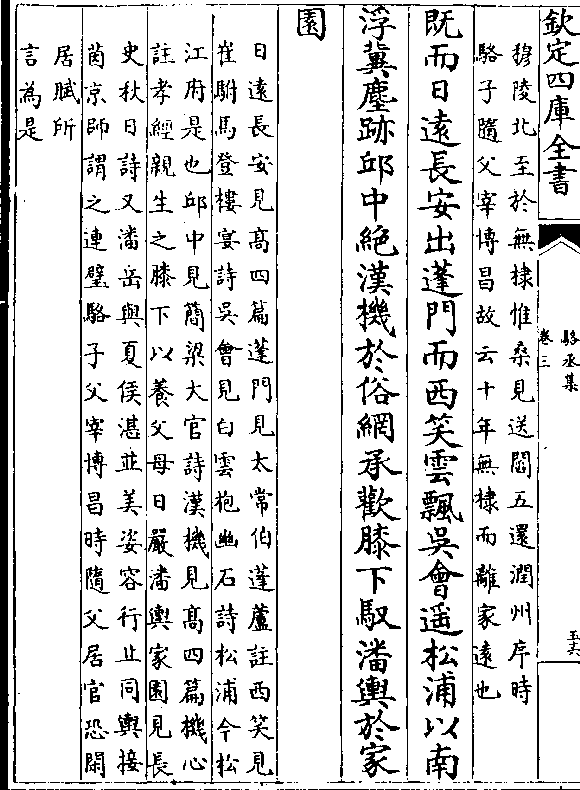 欽定四庫全書
駱丞集
卷三
穆陵北至於無棣惟桑見送閻五還潤州序時
駱子隨父宰博昌故云十年無棣而離家遠也
既而日遠長安出蓬門而西笑雲飄吳會遥松浦以南
浮冀塵跡邱中絶漢機於俗網承歡膝下馭潘輿於家
園
日遠長安見高四篇蓬門見太常伯蓬蘆註西笑見
崔駙馬登樓宴詩吳會見白雲抱幽石詩松浦今松
江府是也邱中見簡梁大官詩漢機見高四篇機心
註孝經親生之膝下以養父母日嚴潘輿家園見長
史秋日詩又潘岳與夏侯湛並美姿容行止同輿接
茵京師謂之連璧駱子父宰博昌時隨父居官恐閑
居賦所
言為是